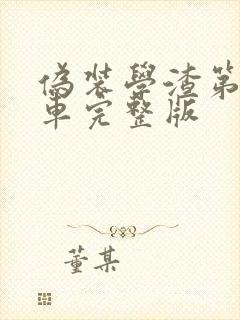 偽裝學渣第
車完整版
董某